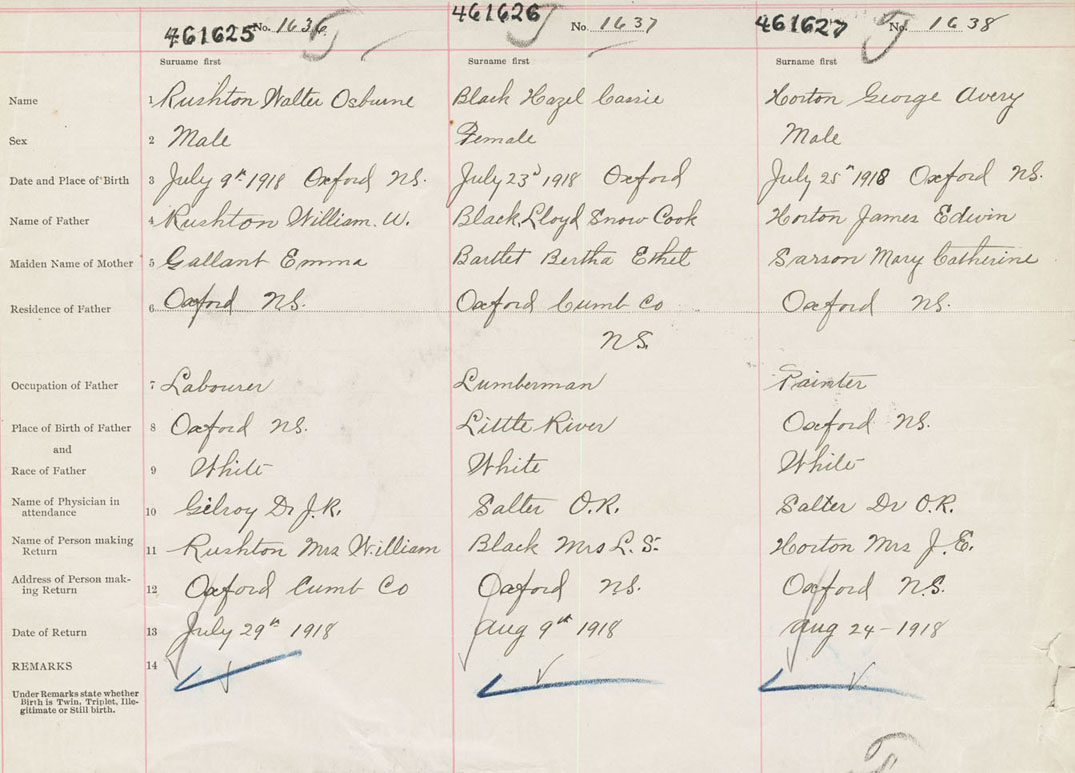 461625 No. 1636 461626 No. 1637 461627 No. 1638
Surname first Surname first Surname first
Name 1 Rushton Walter Osburne Black Hazel Cassie Horton George Avery
Sex 2 Male Female Male
Date and Place of Birth 3 July 9th 1918 Oxford N.S. July 23d 1918 Oxford July 25th 1918 Oxford N.S.
Name of Father 4 Rushton William. W. Black, Lloyd Snow Cook Horton James Edwin
Maiden Name of Mother 5 Gallant Emma Bartlet Bertha Ethel Sarson Mary Catherine
Residence of Father 6 Oxford N.S. Oxford Cumb Co Oxford N.S.
N.S.
Occupation of Father 7 Labourer Lumberman Painter
Place of Birth of Father 8 Oxford N.S. Little River Oxford N.S.
and
Race of Father 9 White White White
Name of Physician in
attendance 10 Gilroy Dr J.R. Salter O.R. Salter Dr O.R.
Name of Person making
Return 11 Rushton Mrs William Black Mrs L. S. Horton Mrs J. E.
Address of Person mak-
ing Return 12 Oxford Cumb Co Oxford N.S. Oxford N.S.
Date of Return 13 July 29th 1918 Aug 9th 1918 Aug 24-1918
REMARKS 14
Under Remarks state whether
Birth is Twin, Triplet, Ille-
gitimate or Still birth.